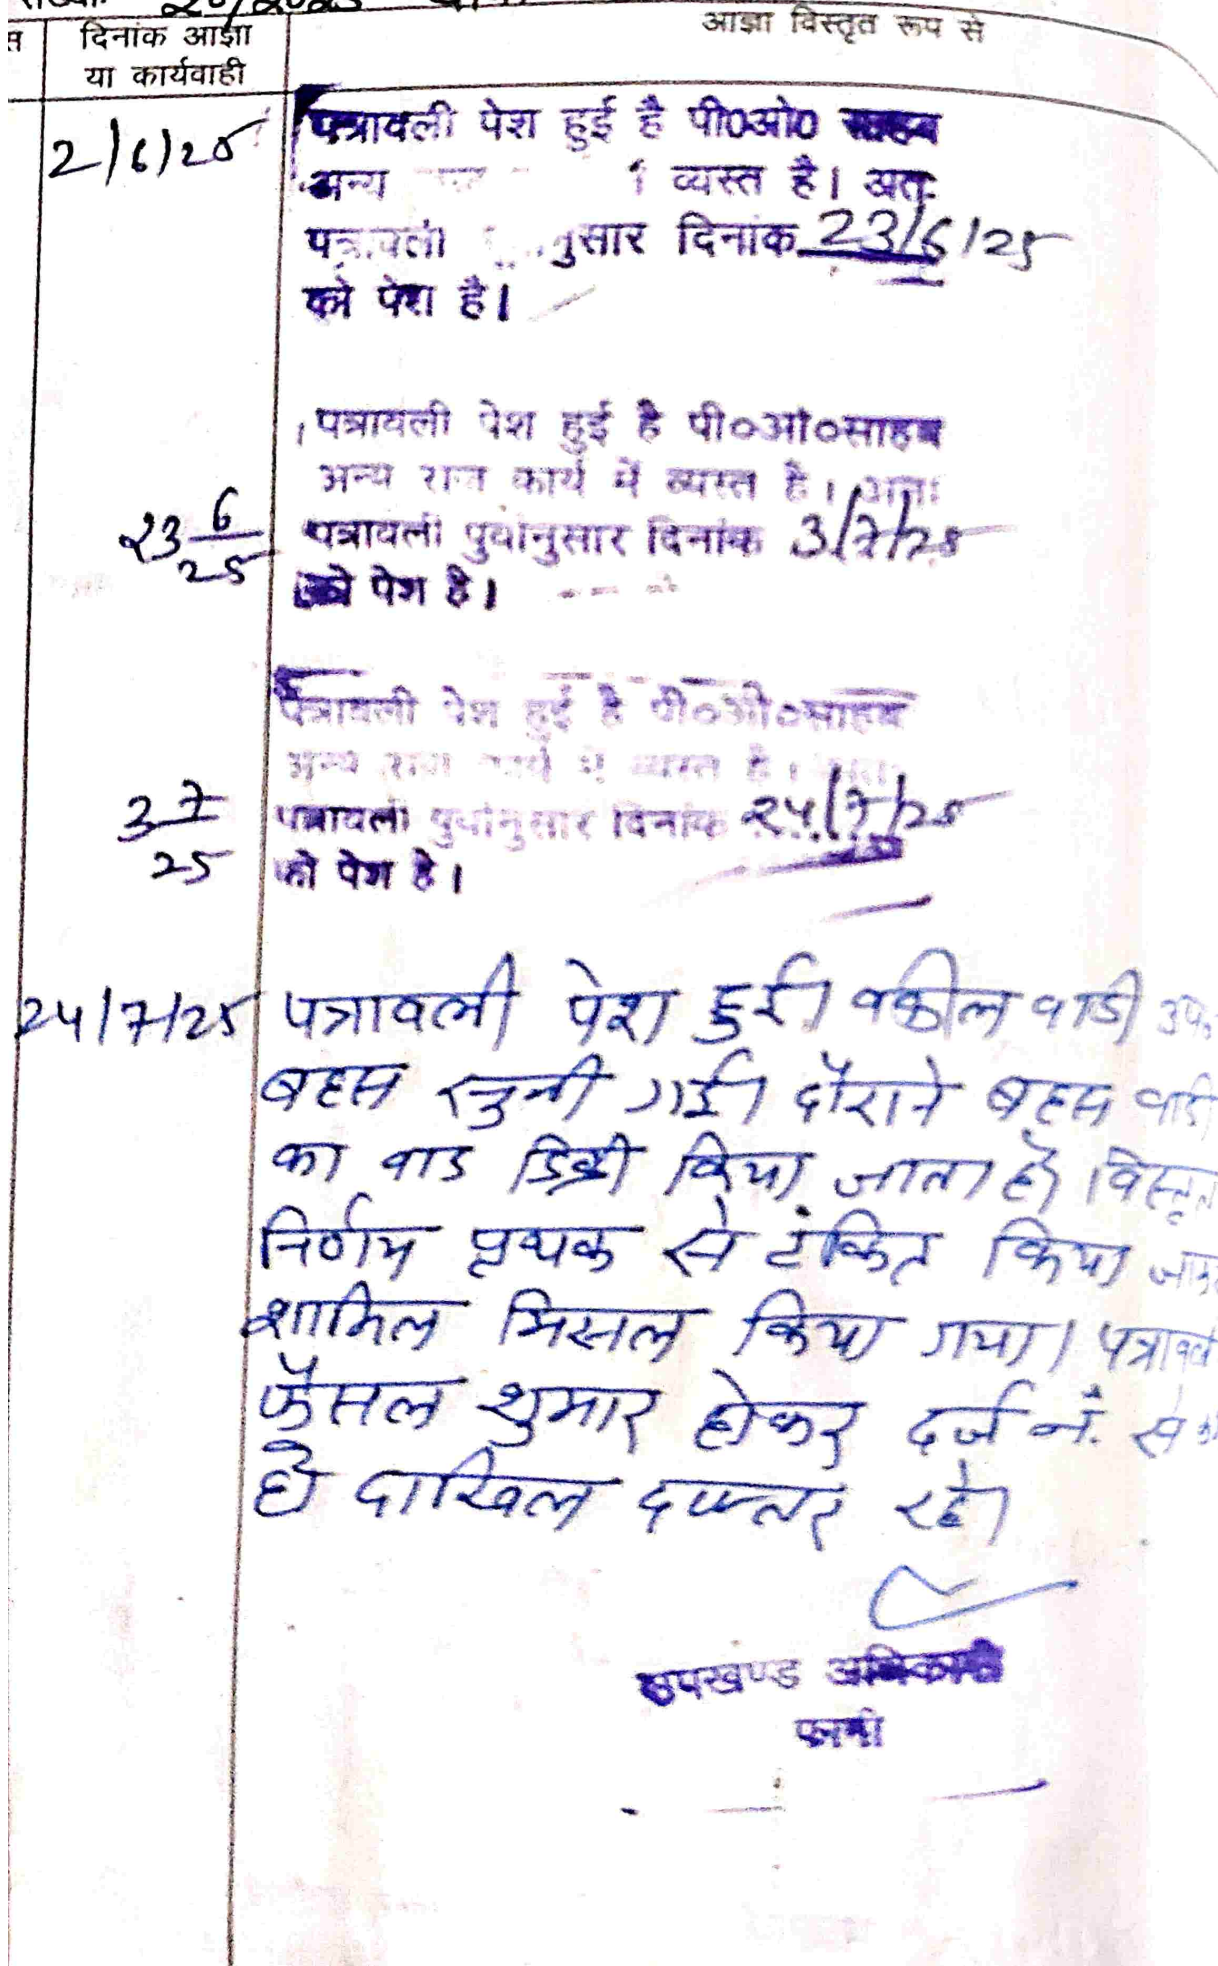 दिनांक आज्ञा
या कार्यवाही
आज्ञा विस्तृत रूप से
2/6/25
पत्रावली पेश हुई है पी०ओ० साहब
अन्य व्यस्त है। अतः
पत्रावली नुसार दिनांक 23/6/25
को पेश है।
पत्रावली पेश हुई है पी०ओ०साहब
अन्य राज कार्य में व्यस्त है। अतः
23 6/25
पत्रावली पुर्वानुसार दिनांक 3/7/25
को पेश है।
पत्रावली पेश हुई है पी०ओ०साहब
अन्य राज कार्य में व्यस्त है। अतः
3 7/25
पत्रावली पुर्वानुसार दिनांक 24/7/25
को पेश है।
24/7/25 पत्रावली पेश हुई। वकील वादी उप०
बहस सुनी गई। दौराने बहस वादी
का वाद डिक्री किया जाता है। विस्तृत
निर्णय पृथक से टंकित किया जाकर
शामिल मिसल किया गया। पत्रावली
फैसल शुमार होकर दर्ज नं. से कम
हो दाखिल दफ्तर रहे।
उपखण्ड अधिकारी